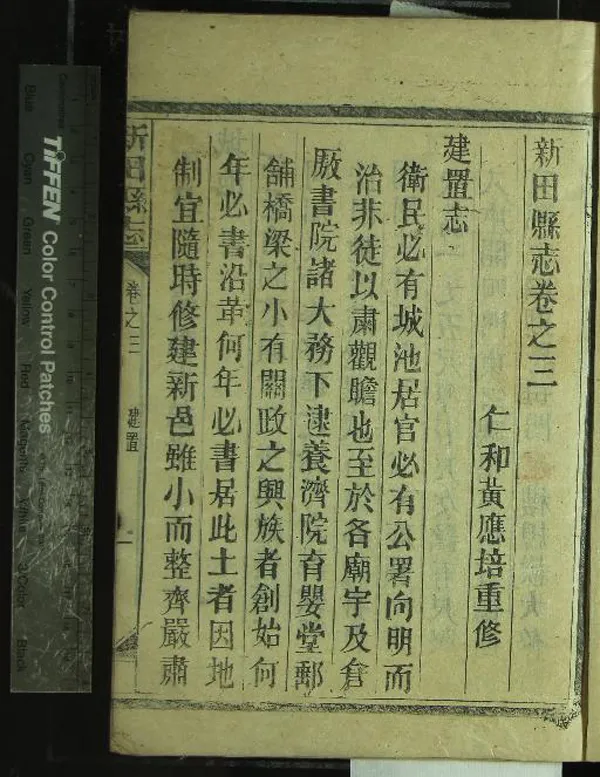 新田縣志卷之三
仁和黃應培重修
建置志
衛民必有城池居官必有公署向明而
治非徒以肅觀瞻也至於各廟宇及倉
厫書院諸大務下逮養濟院育嬰堂郵
舖橋梁之小有關政之興族者創始何
年必書沿革何年必書居此土者因地
制宜隨時修建新邑雖小而整齊嚴肅
新田縣志
卷之三
建置
一
TIFFEN Color Control Patches
Blue
Cyan
Green
Yellow
Red
Magenta
White
3/Color
Black